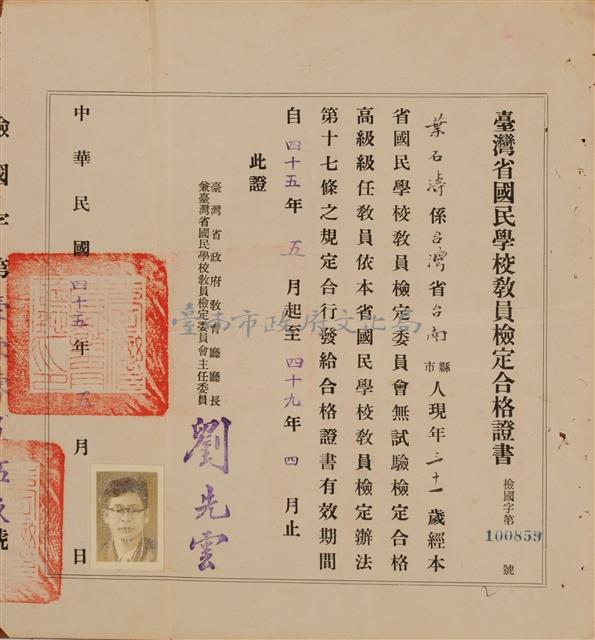 臺灣省國民學校教員檢定合格證書
檢國字第100859號
葉石濤係台灣省台南縣市人現年三十一歲經本
省國民學校教員檢定委員會無試驗檢定合格
高級級任教員依本省國民學校教員檢定辦法
第十七條之規定合行發給合格證書有效期間
自四十五年五月起至四十九年四月止
此證
臺灣省政府教育廳廳長
兼臺灣省國民學校教員檢定委員會主任委員
劉先雲
中華民國四十五年五月日
檢國字第
號
臺南市政府文化局